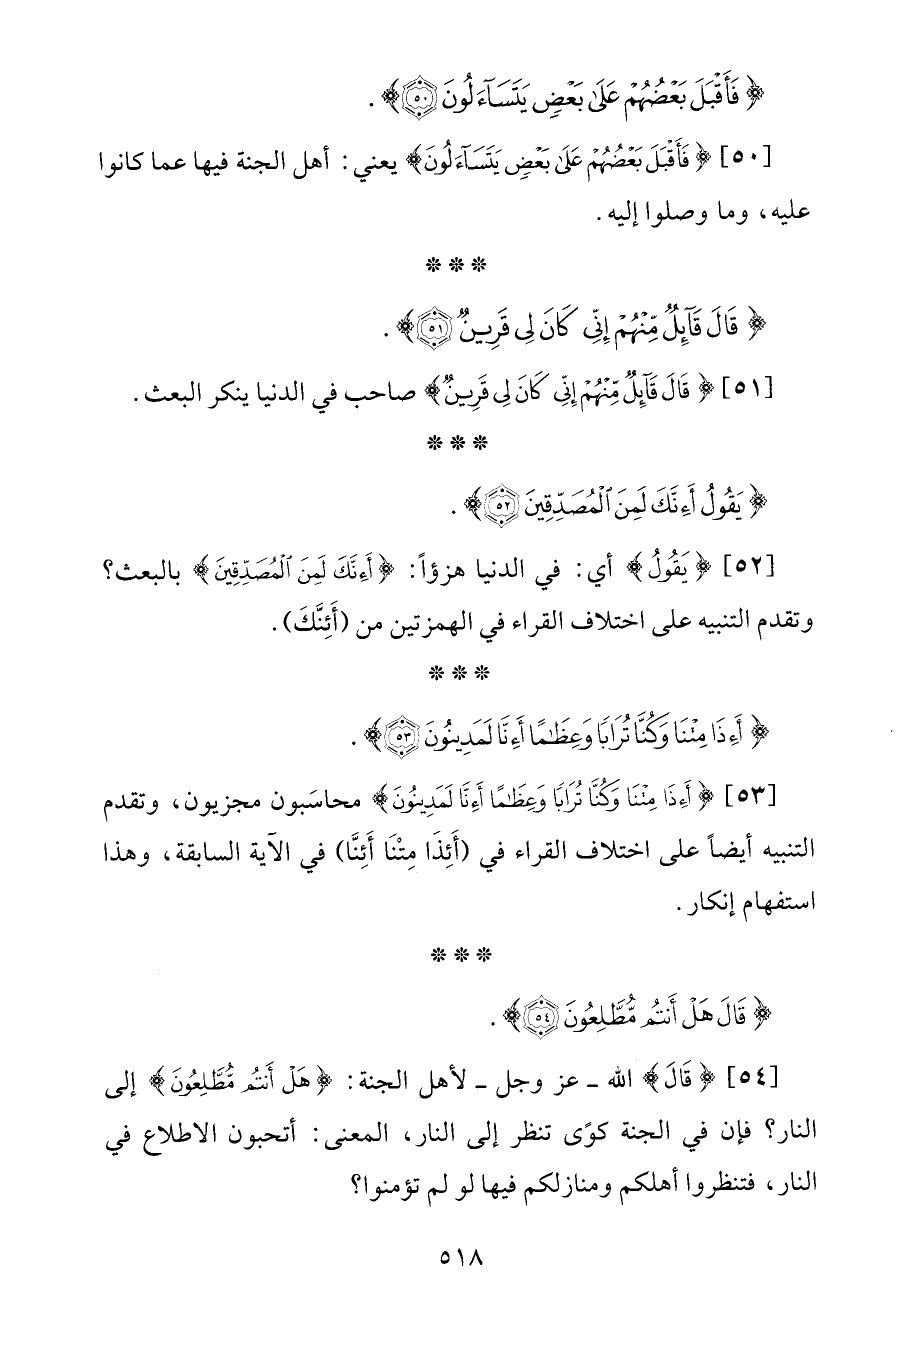 ﴿ فَأَقْبَلَ بَعْضُهُمْ عَلَىٰ بَعْضٍ يَتَسَآءَلُونَ ۝٥٠ ﴾ .
[٥٠] ﴿ فَأَقْبَلَ بَعْضُهُمْ عَلَىٰ بَعْضٍ يَتَسَآءَلُونَ﴾ يعني : أهل الجنة فيها عما كانوا
عليه، وما وصلوا إليه .
* * *
﴿ قَالَ قَآئِلٌ مِّنْهُمْ إِنِّي كَانَ لِي قَرِينٌ ۝٥١ ﴾ .
[٥١] ﴿ قَالَ قَآئِلٌ مِّنْهُمْ إِنِّي كَانَ لِي قَرِينٌ﴾ صاحب في الدنيا ينكر البعث .
* * *
﴿ يَقُولُ أَءِنَّكَ لَمِنَ ٱلْمُصَدِّقِينَ ۝٥٢ ﴾ .
[٥٢] ﴿ يَقُولُ﴾ أي : في الدنيا هزؤاً : ﴿أَءِنَّكَ لَمِنَ ٱلْمُصَدِّقِينَ﴾ بالبعث؟
وتقدم التنبيه على اختلاف القراء في الهمزتين من (أَئِنَّكَ) .
* * *
﴿ أَءِذَا مِتْنَا وَكُنَّا تُرَابًا وَعِظَٰمًا أَءِنَّا لَمَدِينُونَ ۝٥٣ ﴾ .
[٥٣] ﴿ أَءِذَا مِتْنَا وَكُنَّا تُرَابًا وَعِظَٰمًا أَءِنَّا لَمَدِينُونَ﴾ محاسَبون مجزيون، وتقدم
التنبيه أيضاً على اختلاف القراء في (أَئِذَا مِتْنَا أَئِنَّا) في الآية السابقة، وهذا
استفهام إنكار .
* * *
﴿ قَالَ هَلْ أَنتُم مُّطَّلِعُونَ ۝٥٤ ﴾ .
[٥٤] ﴿ قَالَ﴾ الله ـ عز وجل ـ لأهل الجنة : ﴿ هَلْ أَنتُم مُّطَّلِعُونَ﴾ إلى
النار؟ فإن في الجنة كوًى تنظر إلى النار، المعنى : أتحبون الاطلاع في
النار، فتنظروا أهلكم ومنازلكم فيها لو لم تؤمنوا؟
٥١٨